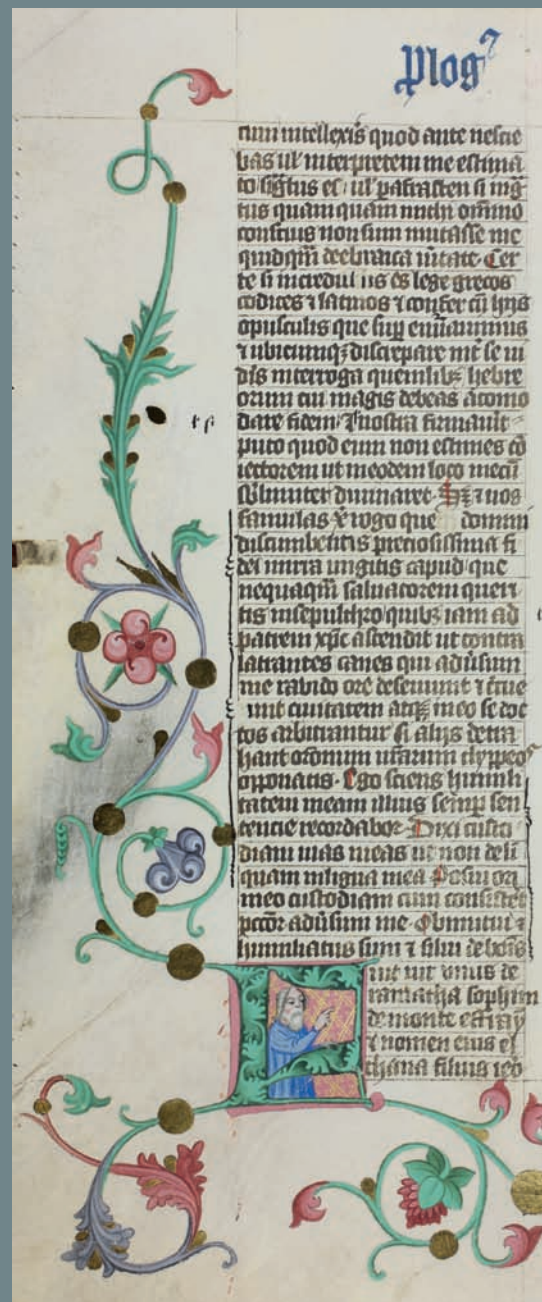 Plog⁹
cum intellexis quod ante nescie
bas ul' interpretem me estima
to si gͣtus es ul' pafrasten si ingͣ
tus quam quam michi omnino
conscius non sim mutasse me
quidqͣm deebraica ũitate. Cer
te si incredul us es lege grecos
codices ⁊ latinos ⁊ confer cũ hijs
opusculis que sup̱ emẽdauimus
⁊ ubicumqȝ discrepare int̾ se ui
dĩs interroga quemlibȝ hebre
orum cui magis debeas acomo
dare fidem ⁊ si nostra firmauit
puto quod eum non estimes cõ
iectorem ut ineodem loco mecũ
similiter diuinaret. Sȝ ⁊ uos
famulas xp̃i rogo que domini
discumbentis preciosissima fi
dei mirra ungitis capud que
nequaqͣm saluatorem queri
tis insepulchro quibȝ iam ad
patrem xp̃c ascendit ut contra
latrantes canes qui adũsum
me rabido ore deseuiunt ⁊ circue
unt ciuitatem atqȝ ineo se doc
tos arbitrantur si alijs detra
hant orõnum ũrarum clyppeos
opponatis. Ego sciens humili
tatem meam illius semp̱ sen
tencie recordabor. Dixi custo
diam uias meas ut non deli
quam inligua mea Posui ori
meo custodiam cum consistet
pctõr adũsum me. Obmutui ⁊
humiliatus sum ⁊ silui de bonis
uit uir unus de
ramatha sophim
de monte effraym
⁊ nomen eius el
chana filius iero